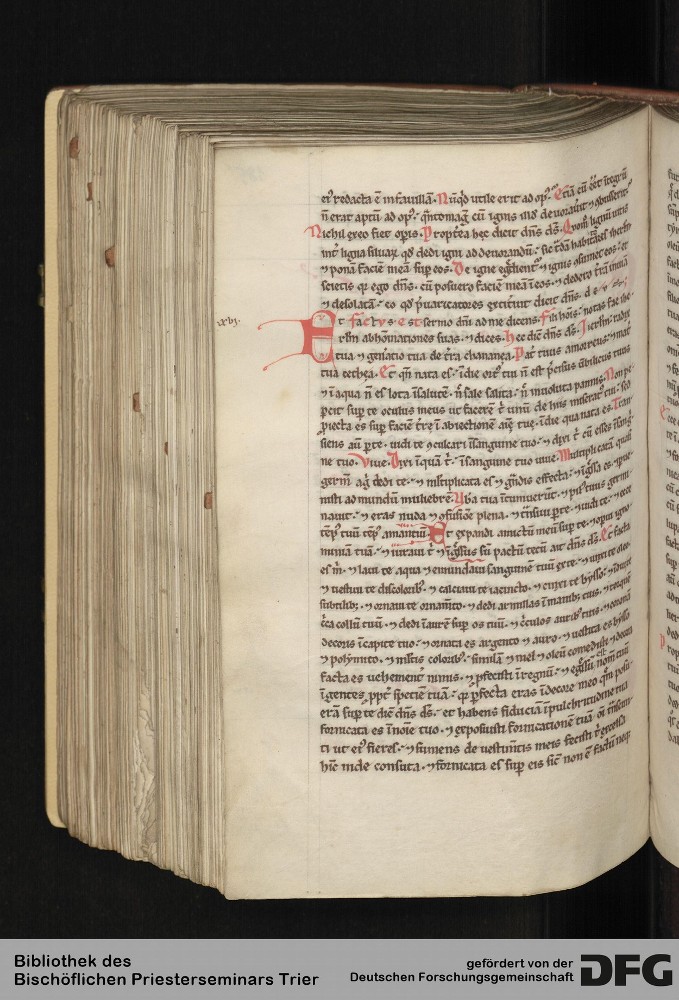 ei᷒ redacta ē in fauillā. Nūqd utile erit ad op᷒. Etiā cū eēt ītegrū
n̄ erat aptū ad op᷒. qntomag cū ignis illd deuorauit ⁊ obusserit
Nichil ex eo fiet opis. Propt̄ea hec dicit dn̄s ds̄. Quom̄ lignū uitis
int̄ ligna siluaꝝ qd dedi igni ad deuorandū. sic t̄dā habitatores ihrlm̄
⁊ ponā faciē meā sup eos. De igne egdient᷒ ⁊ ignis ↄsumet eos. et
scietis qꝛ ego dn̄s. cū posuero faciē meā ī eos. ⁊ dedero t̄rā inuiā
⁊ desolatā. eo qd p̄uaricatores extit̄int dicit dn̄s. d e
xvi.
Et factus est sermo dn̄i ad me dicens. Fili hoīs. notas fac ihr
erlm̄ abhōinationes suas. ⁊ dices. Hec dic̄ dn̄s ds̄. Ierlm̄. radix
tua ⁊ gen̄atio tua de t̄ra chananea. Pat̄ tuus amorreus. ⁊ mat̄
tua cethea. Et qn̄ nata es. ī die ort᷒ tui n̄ est p̄cisus ūbilicus tuus
⁊ ī aqua n̄ es lota ī salutē. n̄ sale salita. n̄ inuoluta pannis. Non pe
pcit sup te oculus meus ut facerē t̄ unū de hiis miserat᷒ tui. sed
piecta es sup faciē t̄re ī abiectione aīe tue. ī die qua nata es. Tran
siens aū p te. uidi te ↄculcari ī sanguine tuo. ⁊ dixi t̄ cū esses ī sang
ne tuo. Viue. Dixi īquā t̄. ī sanguine tuo uiue. Multiplicatā quasi
germ̄ agi dedi te. ⁊ mltiplicata es ⁊ gndis effecta. ⁊ īgssa es. ⁊ pue
nisti ad mundū muliebrē. Vba tua ītumuer̄t. ⁊ pil᷒ tuus germi
nauit. ⁊ eras nuda ⁊ ↄfusiōe plena. ⁊ tnsiui p te. ⁊ uidi te. ⁊ ecce
tēp᷒ tuū tēp᷒ amantiū Et expandi amictū meū sup te. ⁊ opui igno
miniā tuā. ⁊ iuraui t̄ ⁊ īgssus sū pactū tecū ait dn̄s ds̄. Et facta
es m̄. ⁊ laui te aqua ⁊ emundaui sanguinē tuū ex te. ⁊ unxi te oleo
⁊ uestiui te discolorib᷒. ⁊ calciaui te iacincto. ⁊ cinxi te bysso. ⁊ īdui te
subtilib᷒. ⁊ ornaui te ornam̄to. ⁊ dedi armillas ī manib᷒ tuis. ⁊ torquē
cca collū tuū. ⁊ dedi īaurē sup os tuū. ⁊ cculos aurib᷒ tuis. ⁊ coronā
decoris ī capite tuo. ⁊ ornata es argento ⁊ auro. ⁊ uestita es bysso
⁊ polymito. ⁊ mltis colorib᷒. similā ⁊ mel ⁊ oleū comedisti ⁊ decora
facta es uehement̄ nimis. ⁊ pfecisti ī regnū. ⁊ egssū est nom̄ tuū
ī gentes ppt̄ speciē tuā. qꝛ pfecta eras ī decore meo. qm̄ posu
erā sup te dic̄ dn̄s ds̄. et habens fiduciā ī pulchritudine tua
fornicata es ī noīe tuo. ⁊ exposuisti fornicationē tuā oī tnseun
ti ut ei᷒ fieres. ⁊ sumens de uestim̄tis meis fecisti t̄ excelsa
hīc inde consuta. ⁊ fornicata es sup eis sic̄ non ē factū neqꝫ
Bibliothek des
Bischöflichen Priesterseminars Trier
gefördert von der
Deutschen Forschungsgemeinschaft
DFG